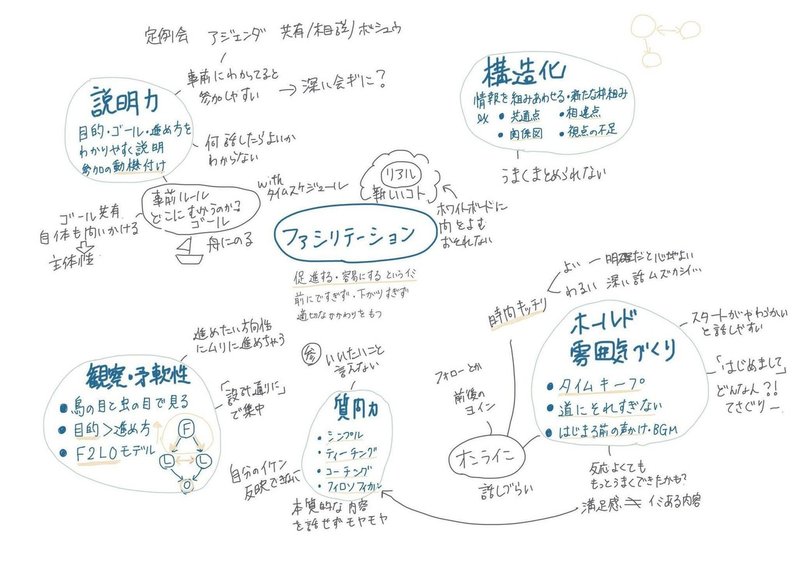 定例会 アジェンダ 共有/相談/ボシュウ
事前にわかってると
参加しやすい
→ 深い会ギに？
説明力
目的・ゴール・進め方を
わかりやすく説明
参加の動機付け
何話したらよいか
わからない
構造化
情報を組みあわせる・新たな枠組み
• 共通点 • 相違点
• 関係図 • 視点の不足
うまくまとめられない
事前ルール
どこにむかうのか？
ゴール
withタイムスケジュール
リアル
新しいコト
ホワイトボードに
向をよむ
おそれない
ゴール共有
自体も問いかける
主体性
舟にのる
ファシリテーション
促進する・容易にする というイミ
前にですぎず・下がりすぎず
適切なかかわりをもつ
時間キッチリ
よい ー 明確だと心がよい
わるい 深い話ムズカシイ…
ホールド
雰囲気づくり
• タイムキープ
• 道にそれすぎない
• はじまる前の声かけ・BGM
スタートがやわらかい
と話しやすい
「はじめまして」
どんな人？！
てさぐりー
進めたい方向性
にムリに進めちゃう
観察・柔軟性
• 鳥の目と虫の目で見る
• 目的＞進め方
• F2LOモデル
F
L L
O
「設計通りに」
で集中
いいたいこと
言えない
質問力
• シンプル
• ティーチング
• コーチング
• フィロソフィカル
自分のイケン
反映できない
本質的な内容
を話せずモヤモヤ
フォローとか
前後の
ヨイン
オンライン
話しづらい
反応よくても
もっとうまくできたかも？
満足感 ≠ イミある内容